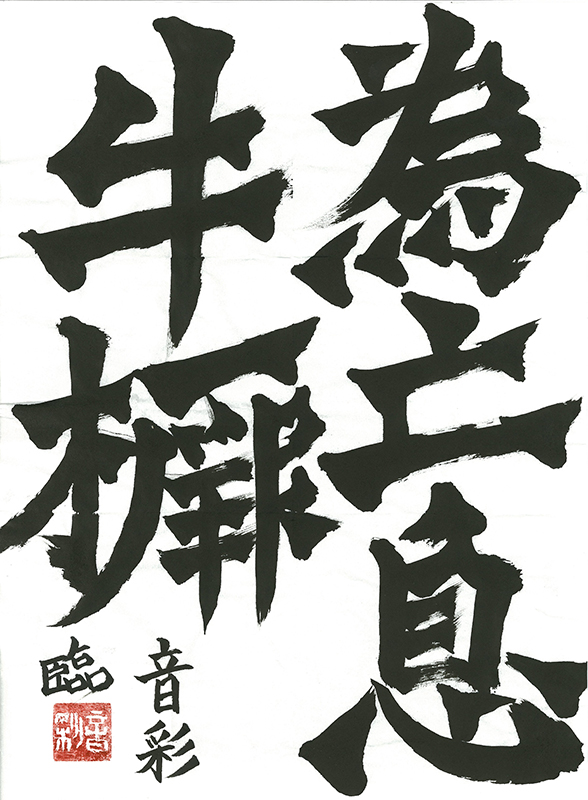 為亡息
牛橛
音彩
臨
音彩